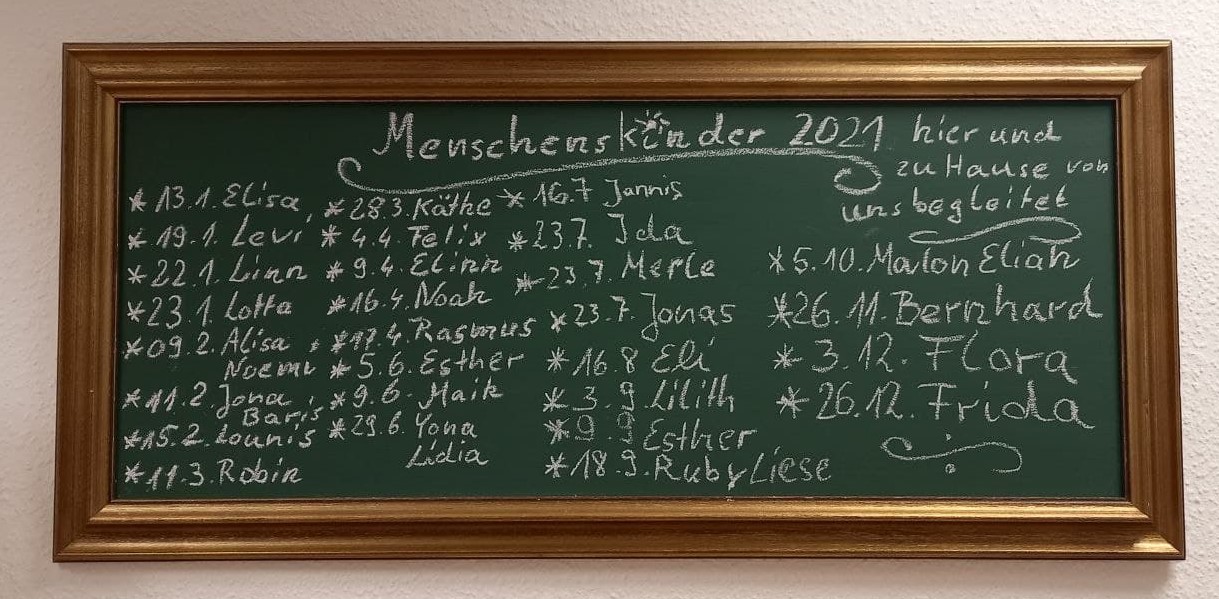 Menschenskinder 2021 hier und
zu Hause von
uns begleitet
* 13.1. Elisa,
* 19.1. Levi
* 22.1. Linn
* 23.1. Lotta
* 09.2. Alisa
Noemi
* 11.2. Jona
Baris
* 15.2. Lounis
* 11.3. Robin
* 28.3. Käthe
* 4.4. Felix
* 9.4. Elinn
* 16.4. Noah
* 17.4. Rasmus
* 5.6. Esther
* 9.6. Maik
* 29.6. Yona
Lidia
* 16.7 Jannis
* 23.7. Ida
* 23.7. Merle
* 23.7. Jonas
* 16.8 Eli
* 3.9. Lilith
* 9.9 Esther
* 18.9. Ruby Liese
* 5.10. Malon Eliah
* 26.11. Bernhard
* 3.12. Flora
* 26.12. Frida